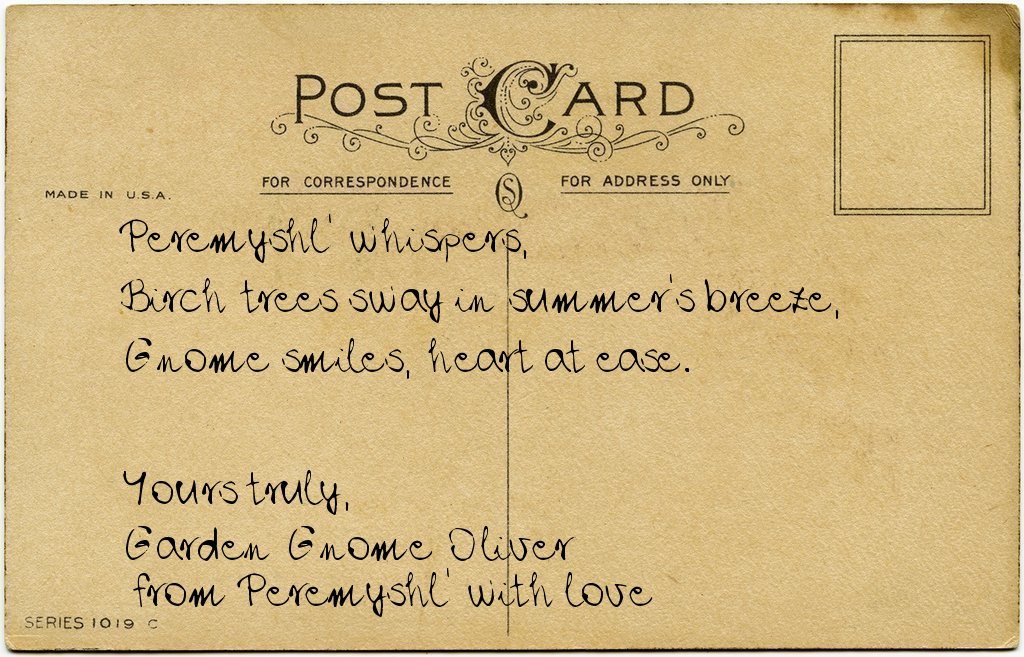 POST CARD
FOR CORRESPONDENCE
FOR ADDRESS ONLY
MADE IN U.S.A.
Peremyshl' whispers,
Birch trees sway in summer's breeze,
Gnome smiles, heart at ease.
Yours truly,
Garden Gnome Oliver
from Peremyshl' with love
SERIES 1019 C